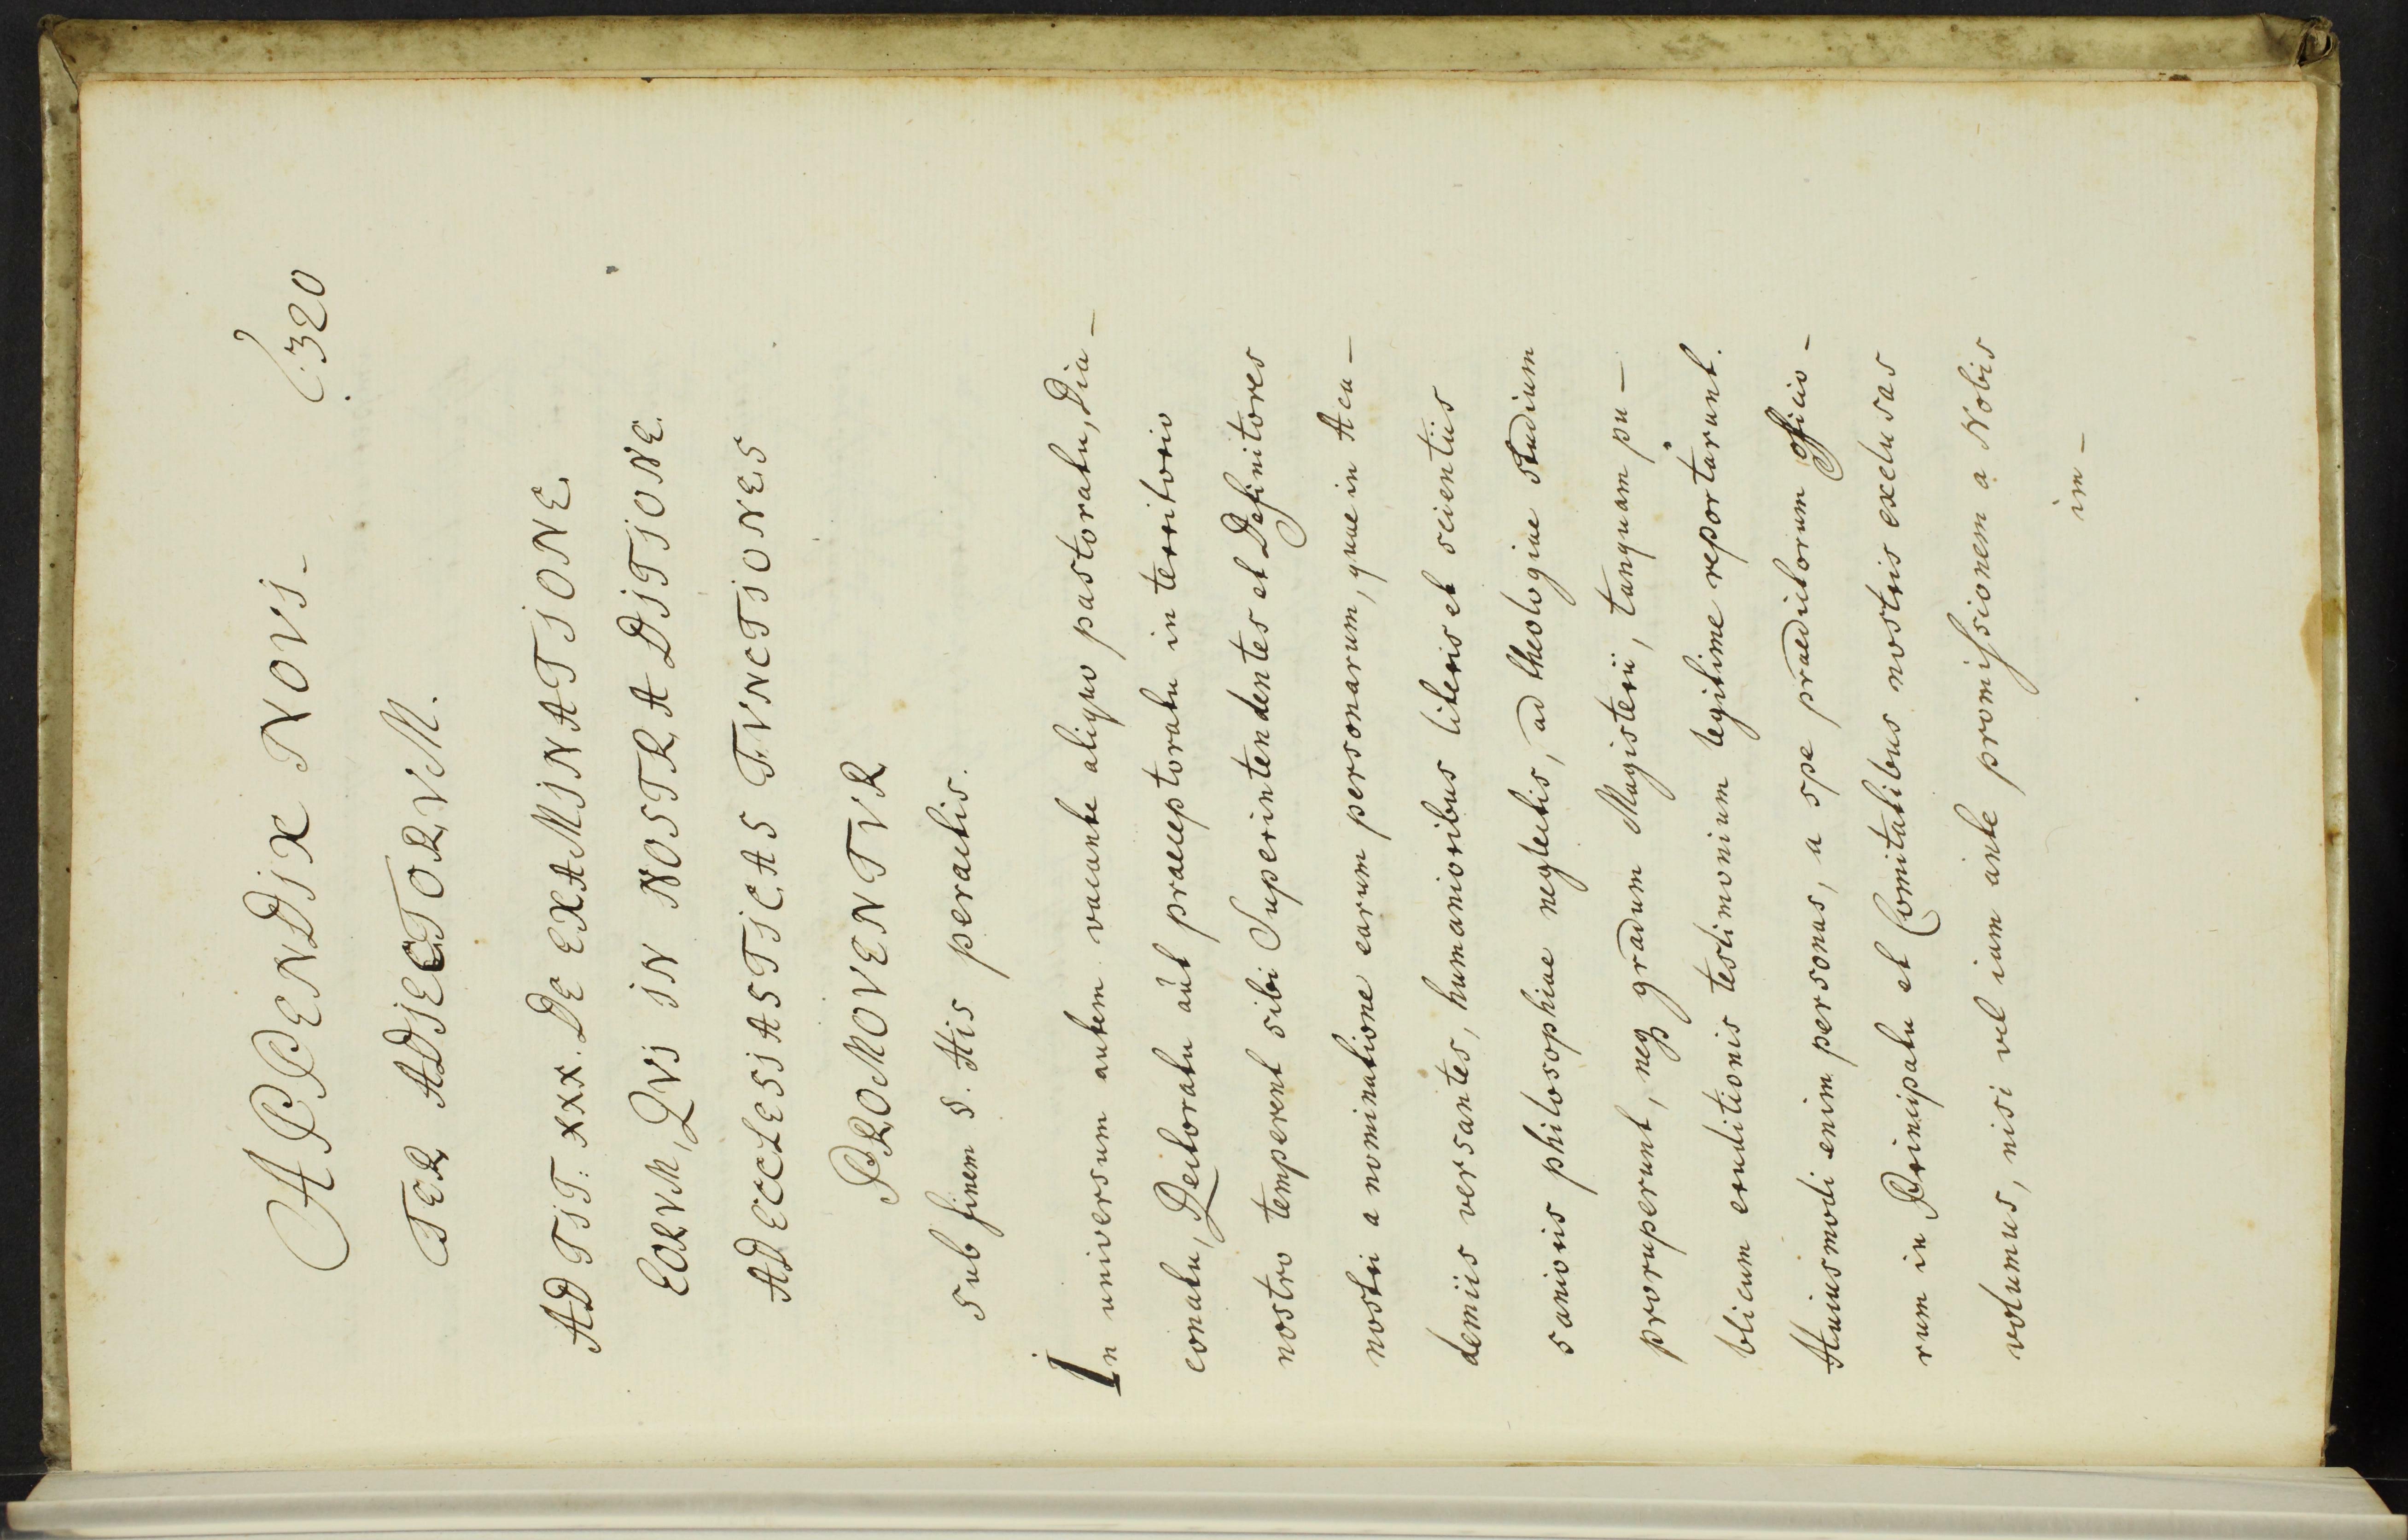 320
APPENDJX NOVJ-
TER ADJECTORVM.
AD TJT: XXX. DE EXAMJNATJONE
EORVM, QVJ JN NOSTRA DJTJONE
AD ECCLESJASTJCAS FVNCTJONES
PROMOVENTVR
sub finem §. His peractis.
In universum autem vacante aliquo pastoratu, Dia-
conatu, Rectoratu aut praeceptoratu in territorio
nostro temperent sibi Superintendentes et Definitores
nostri a nominatione earum personarum, quae in Aca-
demiis versantes, humanioribus literis et scientiis
sanioris philosophiae neglectis, ad theologiae studium
proruperunt, neq gradum Magisterii, tanquam pu-
blicum eruditionis testimonium legitime reportarunt.
Huiusmodi enim personas, a spe praedictorum officio-
rum in Principatu et Comitatibus nostris exclusas
volumus, nisi vel iam ante promissionem a Nobis
im-